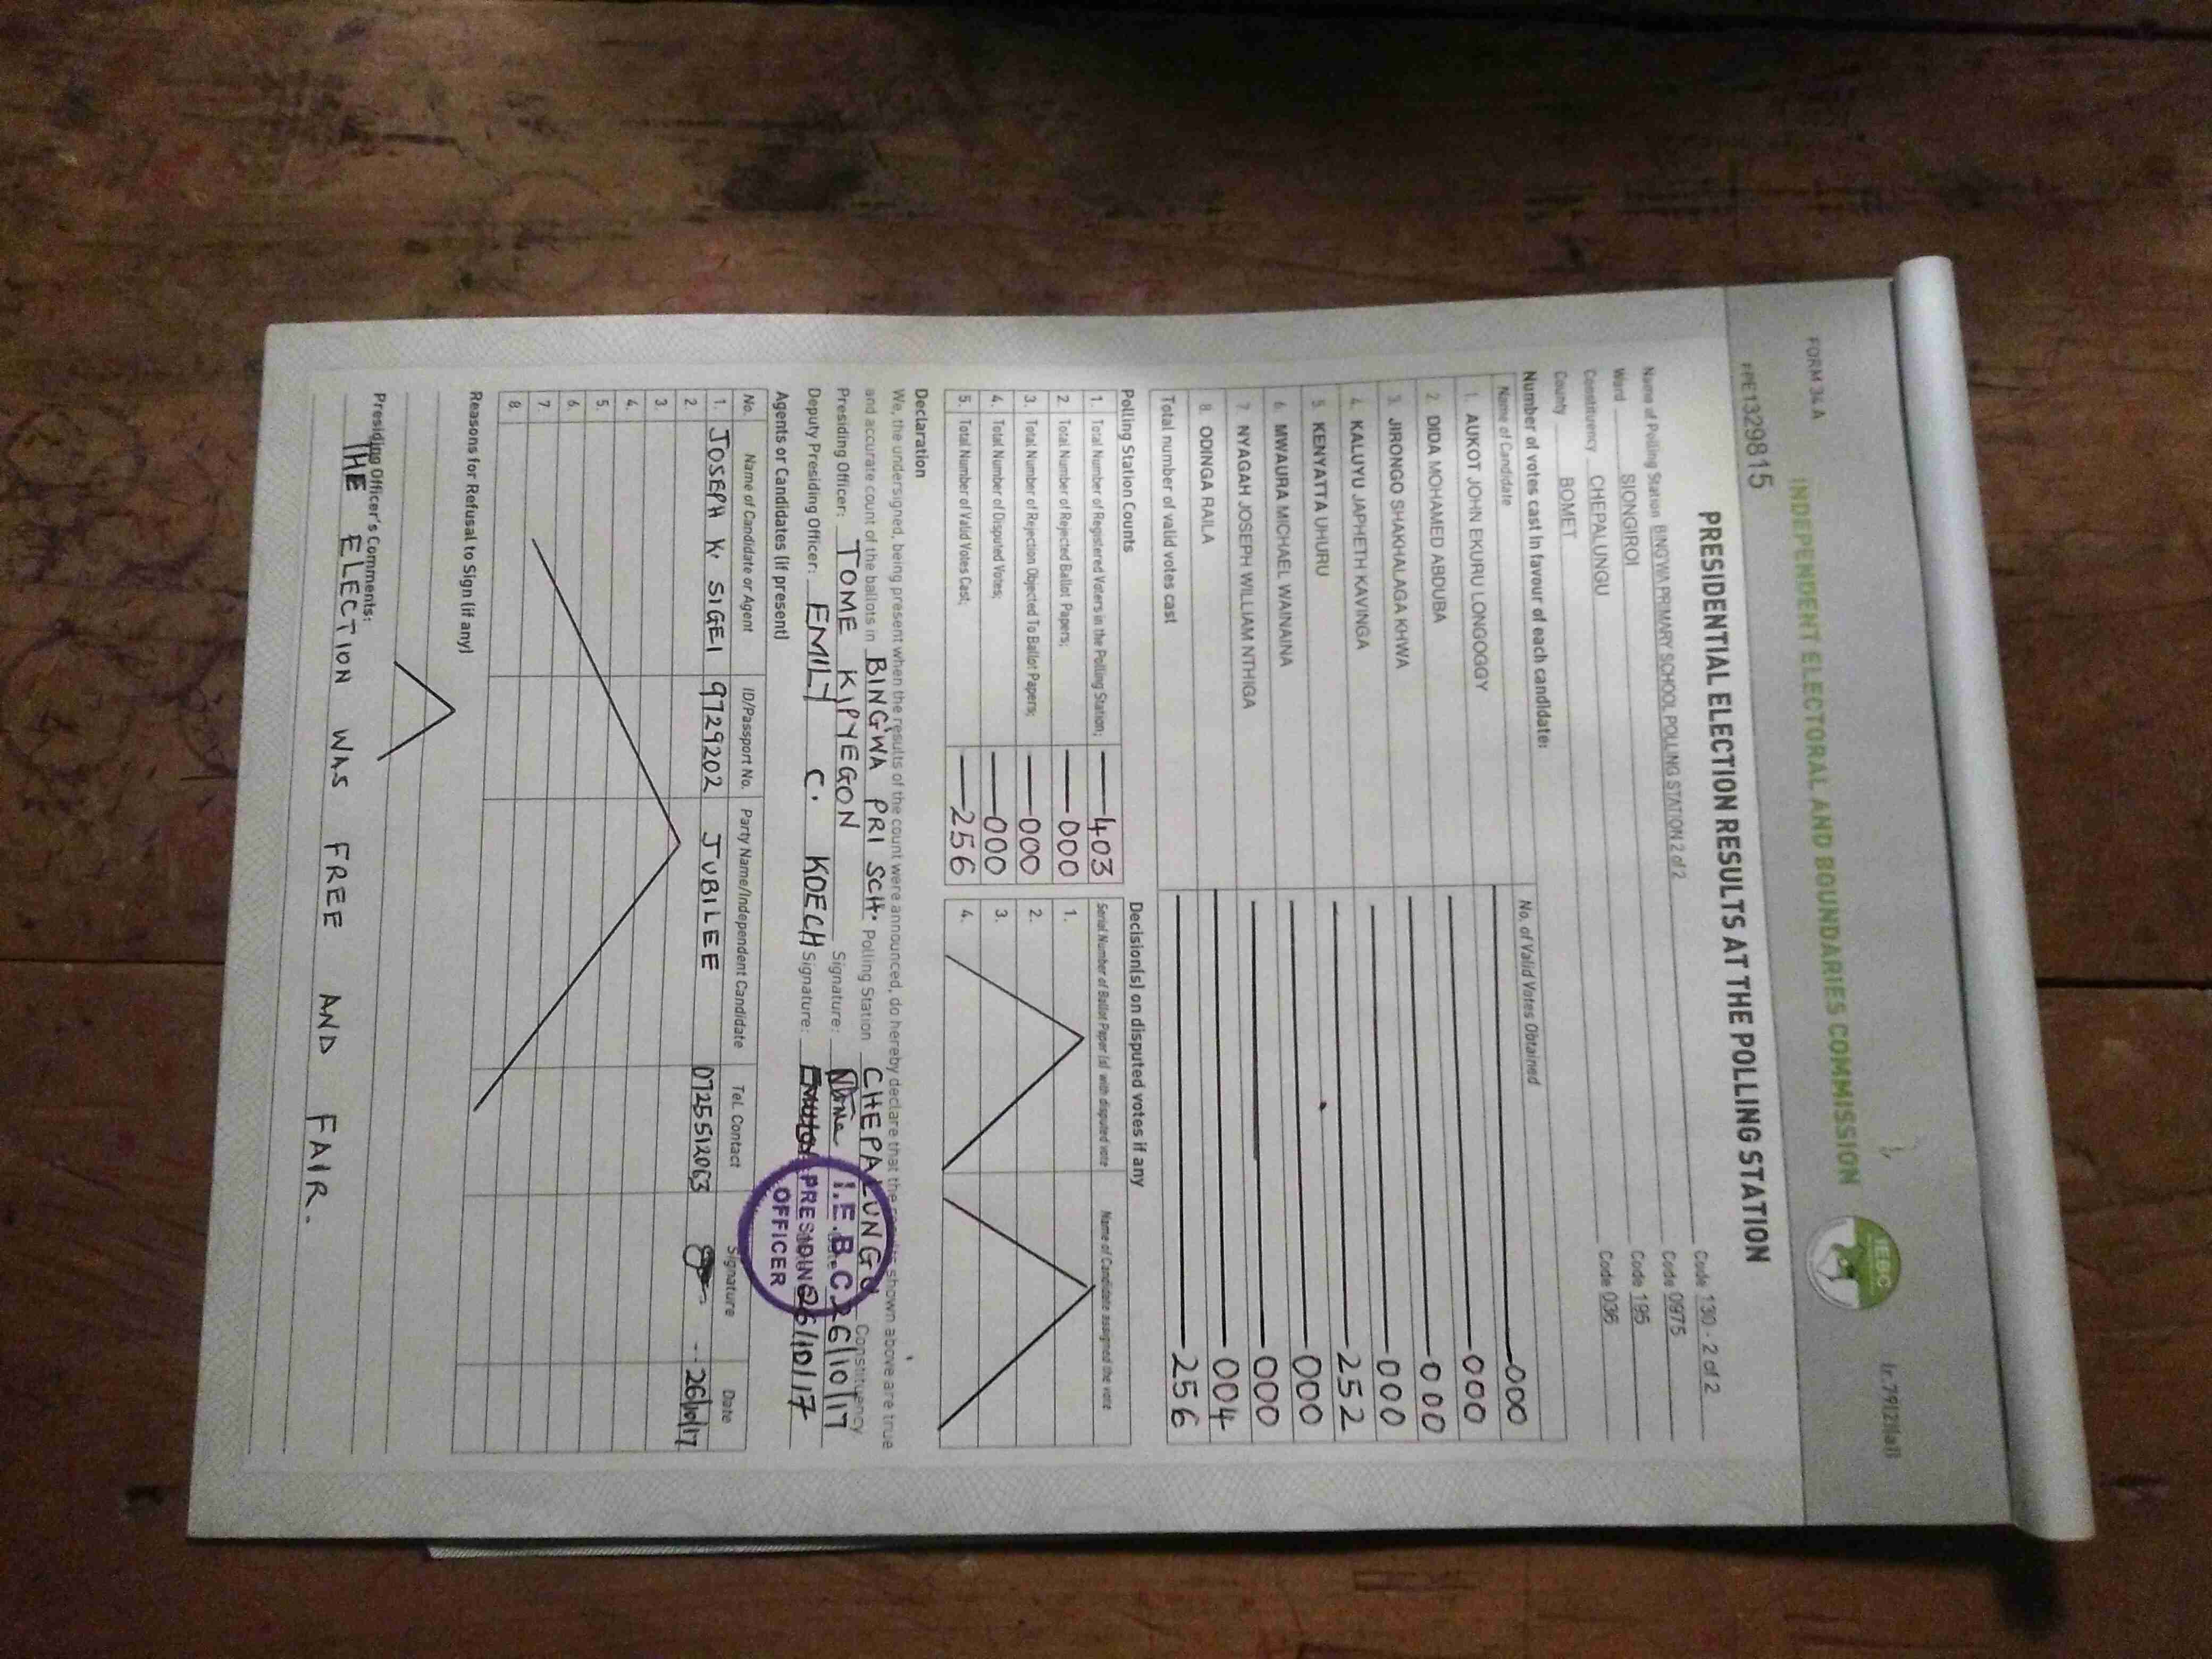 FORM 34A
INDEPENDENT ELECTORAL AND BOUNDARIES COMMISSION
IEBC
FPE1329815
PRESIDENTIAL ELECTION RESULTS AT THE POLLING STATION
Name of Polling Station BINGWA PRIMARY SCHOOL POLLING STATION 2 of 2 Code 130 - 2 of 2
Ward SIONGIROI Code 0975
Constituency CHEPALUNGU Code 195
County BOMET Code 036
Number of votes cast in favour of each candidate:
Name of Candidate No. of Valid Votes Obtained
1. AUKOT JOHN EKURU LONGOGGY 000
2. DIDA MOHAMED ABDUBA 000
3. JIRONGO SHAKHALAGA KHWA 000
4. KALUYU JAPHETH KAVINGA 000
5. KENYATTA UHURU 252
6. MWAURA MICHAEL WAINAINA 000
7. NYAGAH JOSEPH WILLIAM NTHIGA 000
8. ODINGA RAILA 004
Total number of valid votes cast 256
Polling Station Counts
1. Total Number of Registered Voters in the Polling Station; 403
2. Total Number of Rejected Ballot Papers; 000
3. Total Number of Rejection Objected To Ballot Papers; 000
4. Total Number of Disputed Votes; 000
5. Total Number of Valid Votes Cast; 256
Decision(s) on disputed votes if any
Serial Number of Ballot Paper (s) with disputed vote Name of Candidate assigned the vote
1.
2.
3.
4.
Declaration
We, the undersigned, being present when the results of the count were announced, do hereby declare that the results shown above are true
and accurate count of the ballots in BINGWA PRI SCH. Polling Station CHEPALUNGU Constituency
Presiding Officer: TOME KIPYEGON Signature: 26/10/17
Deputy Presiding Officer: EMILY C. KOECH Signature: 26/10/17
I.E.B.C
PRESIDING
OFFICER
Agents or Candidates (if present)
No. Name of Candidate or Agent ID/Passport No. Party Name/Independent Candidate Tel. Contact Signature Date
1. JOSEPH K. SIGEI 9729202 JUBILEE 0725512063 26/10/17
2.
3.
4.
5.
6.
7.
8.
Reasons for Refusal to Sign (if any)
Presiding Officer's Comments:
THE ELECTION WAS FREE AND FAIR.